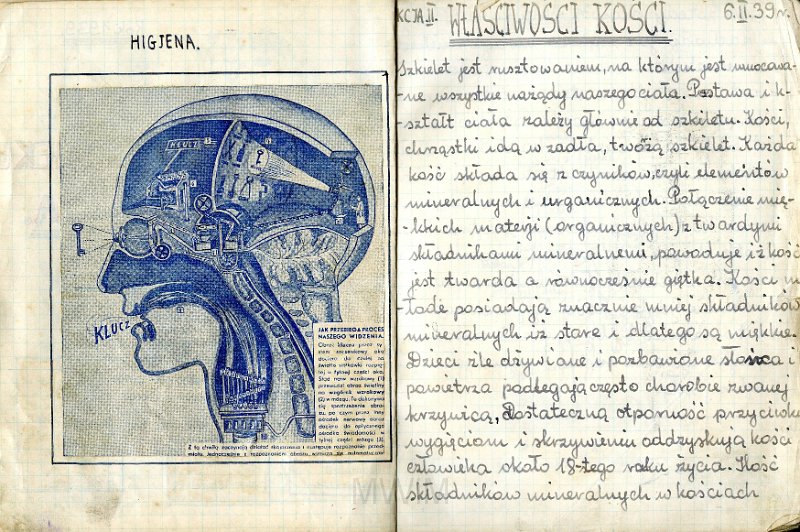 HIGJENA.
KLUCZ
KLUCZ
JAK PRZEBIEGA PROCES
NASZEGO WIDZENIA.
Obraz klucza przez sy-
stem soczewkowy oka
dociera do czułej na
światło siatkówki rozpię-
tej w tylnej części oka.
Stąd nerw wzrokowy (1)
przewodzi obraz świetlny
na wzgórek wzrokowy
(2) w mózgu. Tu dokonywa
się
po czym przez inny
ośrodek nerwowy obraz
dociera do optycznego
ośrodka świadomości w
tylnej części mózgu (3).
Z tą chwilą zaczynają działać skojarzenia i następuje rozpoznanie przed-
miotu. Jednocześnie z rozpoznaniem obrazu
KCJA II. WŁAŚCIWOŚCI KOŚCI. 6.II.39 r.
Szkielet jest rusztowaniem, na którym jest umocowa-
-ne wszystkie nażądy naszego ciała. Postawa i k-
-ształt ciała zależy głównie od szkieletu. Kości,
chrząstki idą w zadła, twożą szkielet. Każda
kość składa się z czyników, czyli elementów
mineralnych i urganicznych. Połączenie mię-
-kkich materji (organicznych) z twardymi
składnikami mineralnemi, powoduje iż kość
jest twarda a równocześnie giętka. Kości m
-łode posiadają znacznie mniej składników
mineralnych iż stare i dlatego są miękkie.
Dzieci źle dżywiane i pozbawione słońca i
powietrza podlegają często chorobie zwanej
krzywicą, Dostateczną odporność przyciwko
wygięciom i skrzywieniu oddzyskują kości
człowieka około 18-tego roku życia. Ilość
składników mineralnych w kościach
MWM